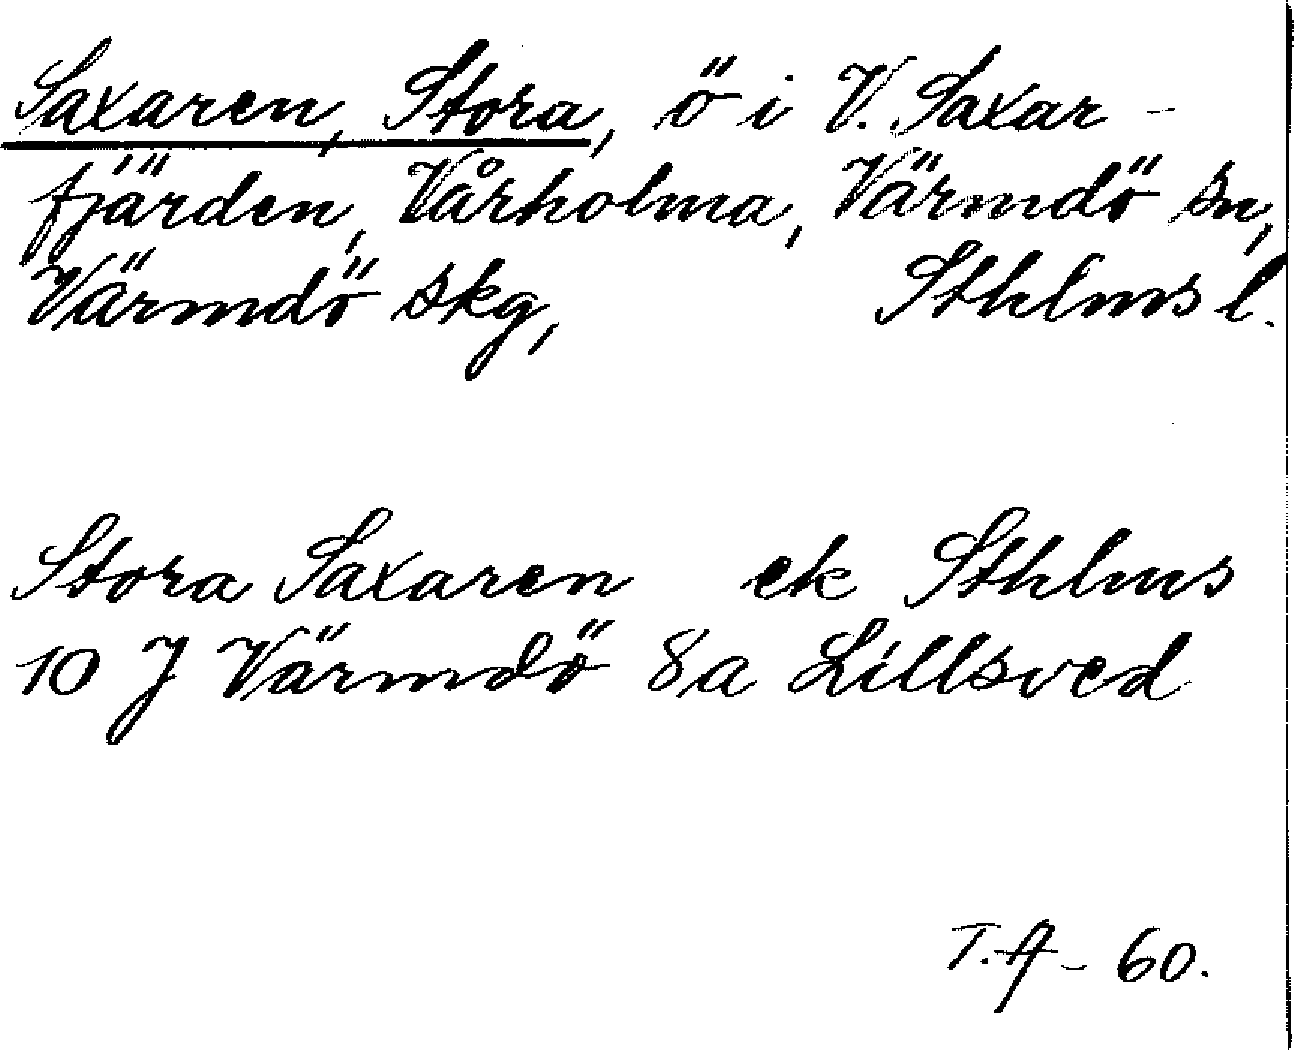 Saxaren, Stora, ö i V. Saxar-
fjärden, Vårholma, Värmdö sn,
Värmdö skg, Sthlms l.
Stora Saxaren ek Sthlms
10 J Värmdö 8a Lillsved
T.A- 60.